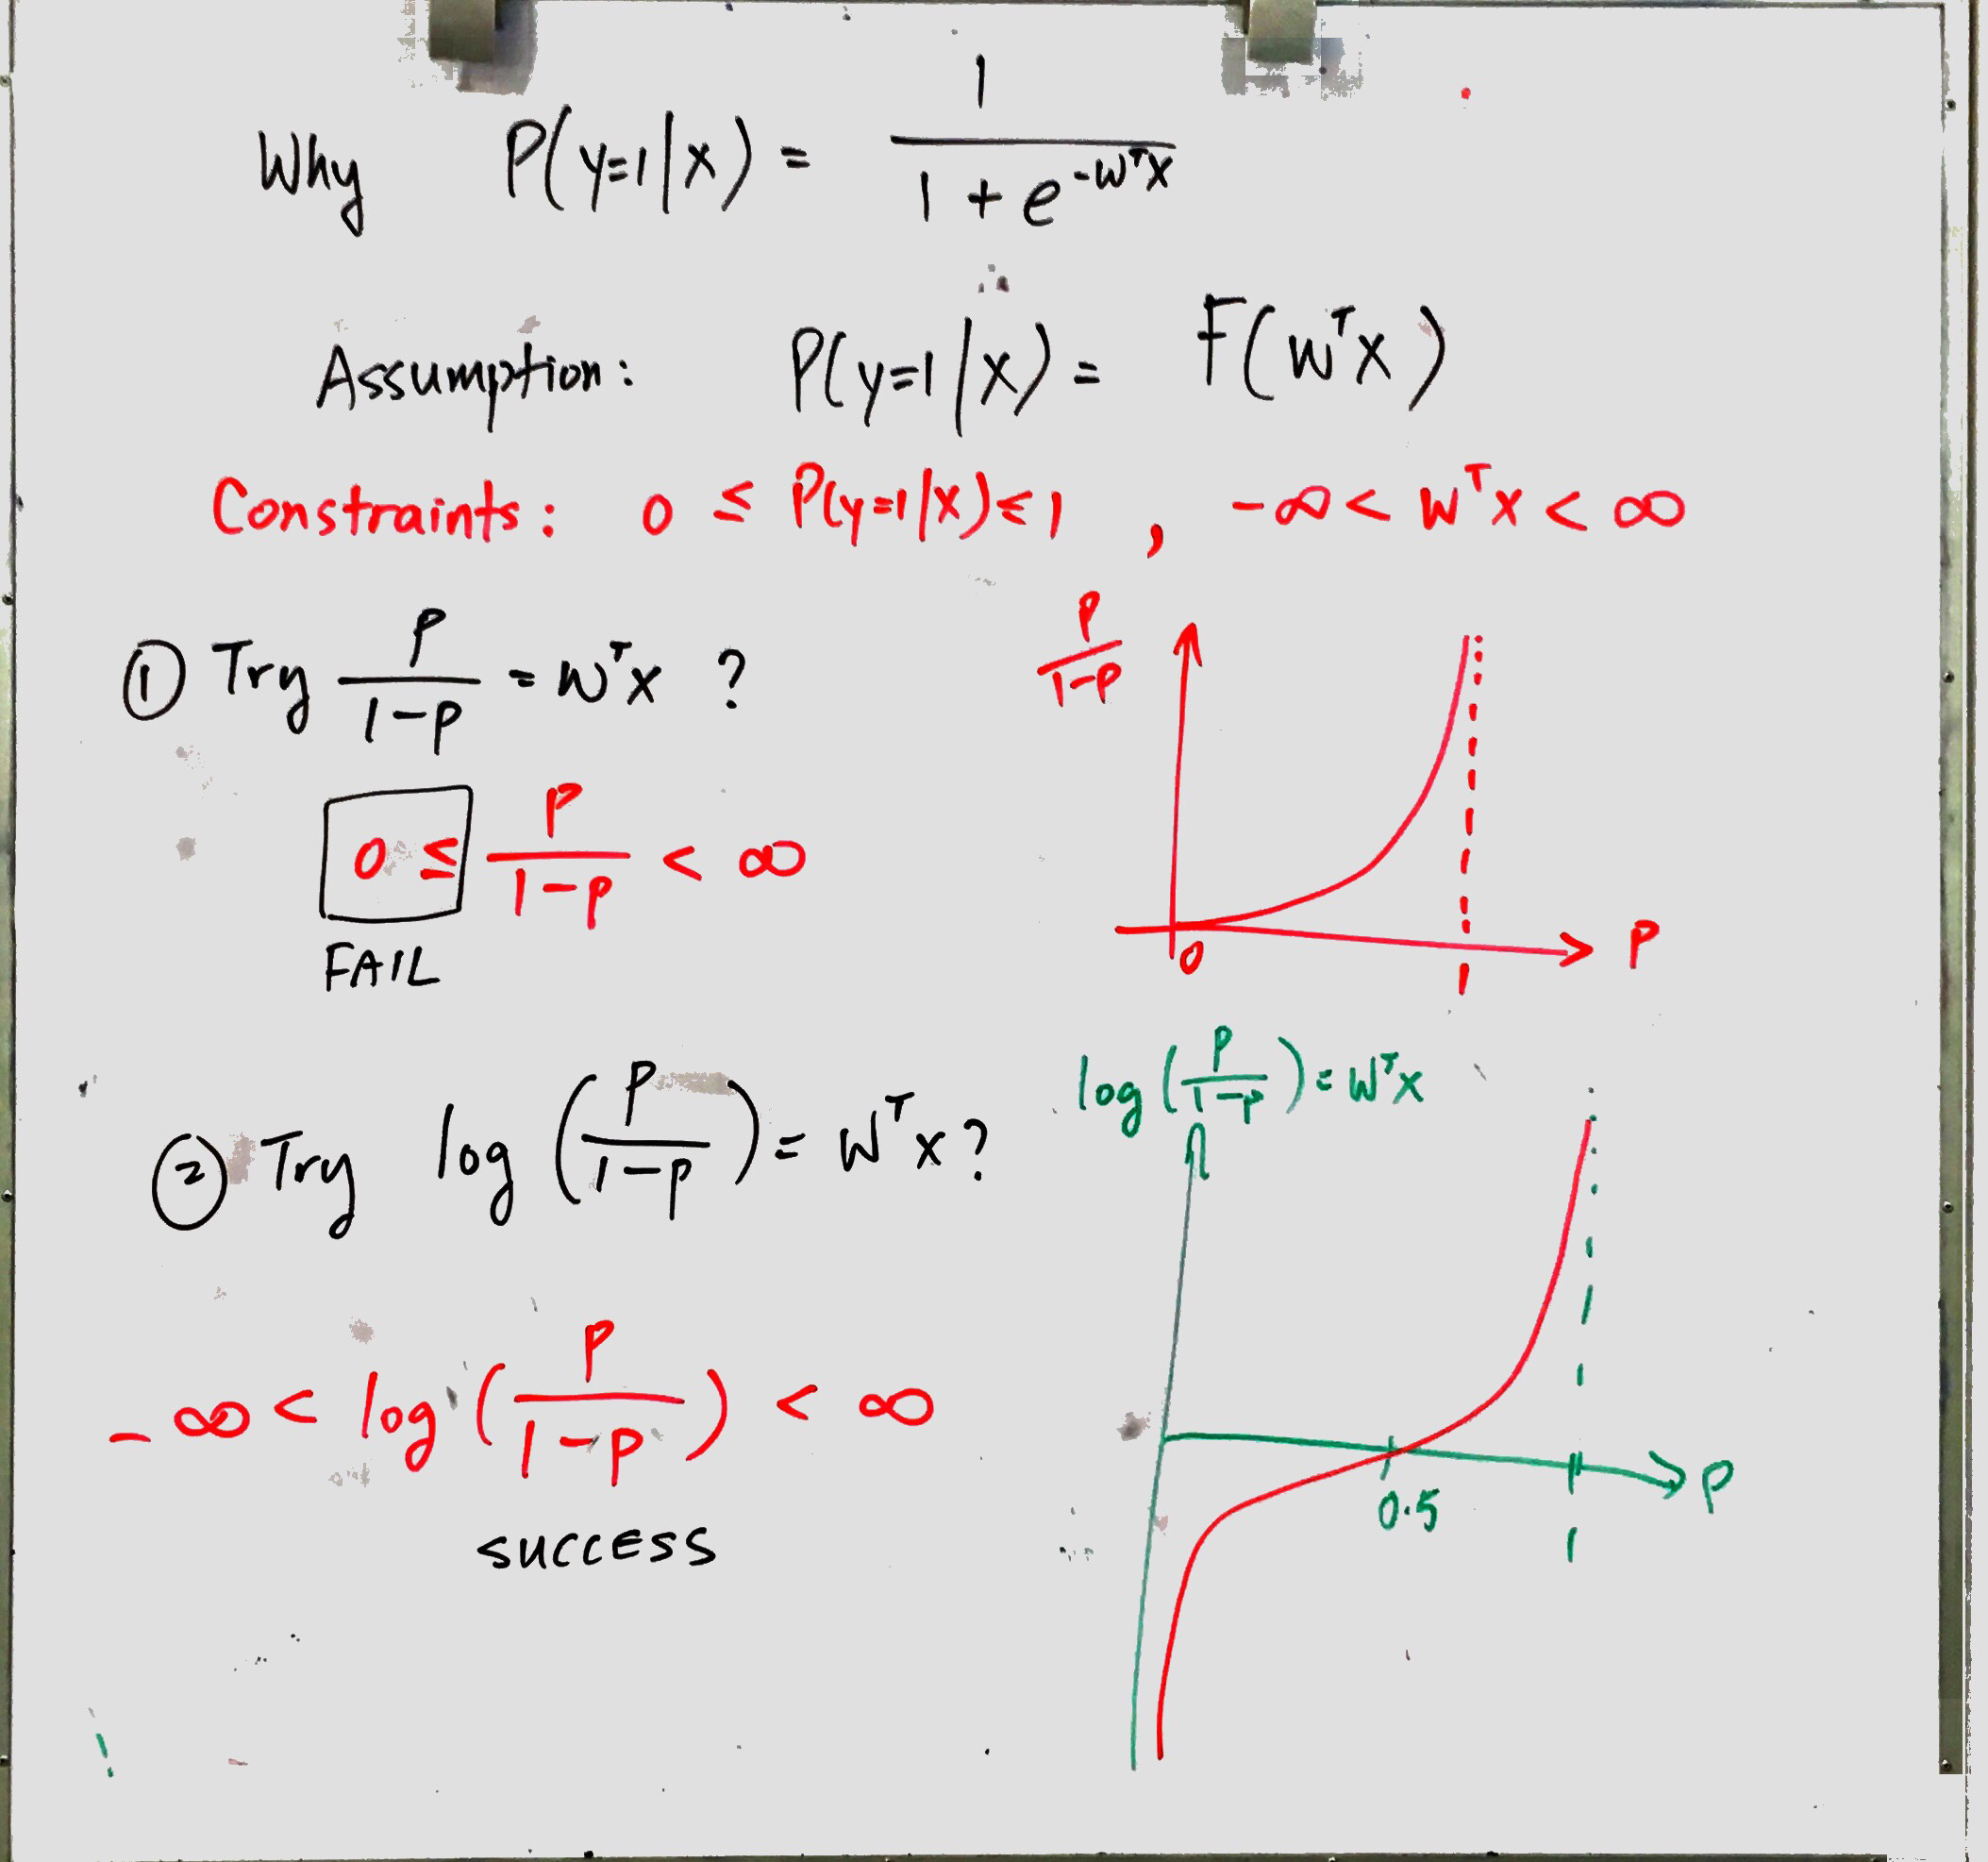 Why P(y=1|x) = 1 / (1 + e^(-wᵀx))
Assumption: P(y=1|x) = F(wᵀx)
Constraints: 0 ≤ P(y=1|x) ≤ 1 , -∞ < wᵀx < ∞
① Try p/(1-p) = wᵀx ?
0 ≤ p/(1-p) < ∞
FAIL
p/(1-p)
0
1
P
② Try log(p/(1-p)) = wᵀx?
-∞ < log(p/(1-p)) < ∞
SUCCESS
log(p/(1-p)) = wᵀx
0.5
1
P